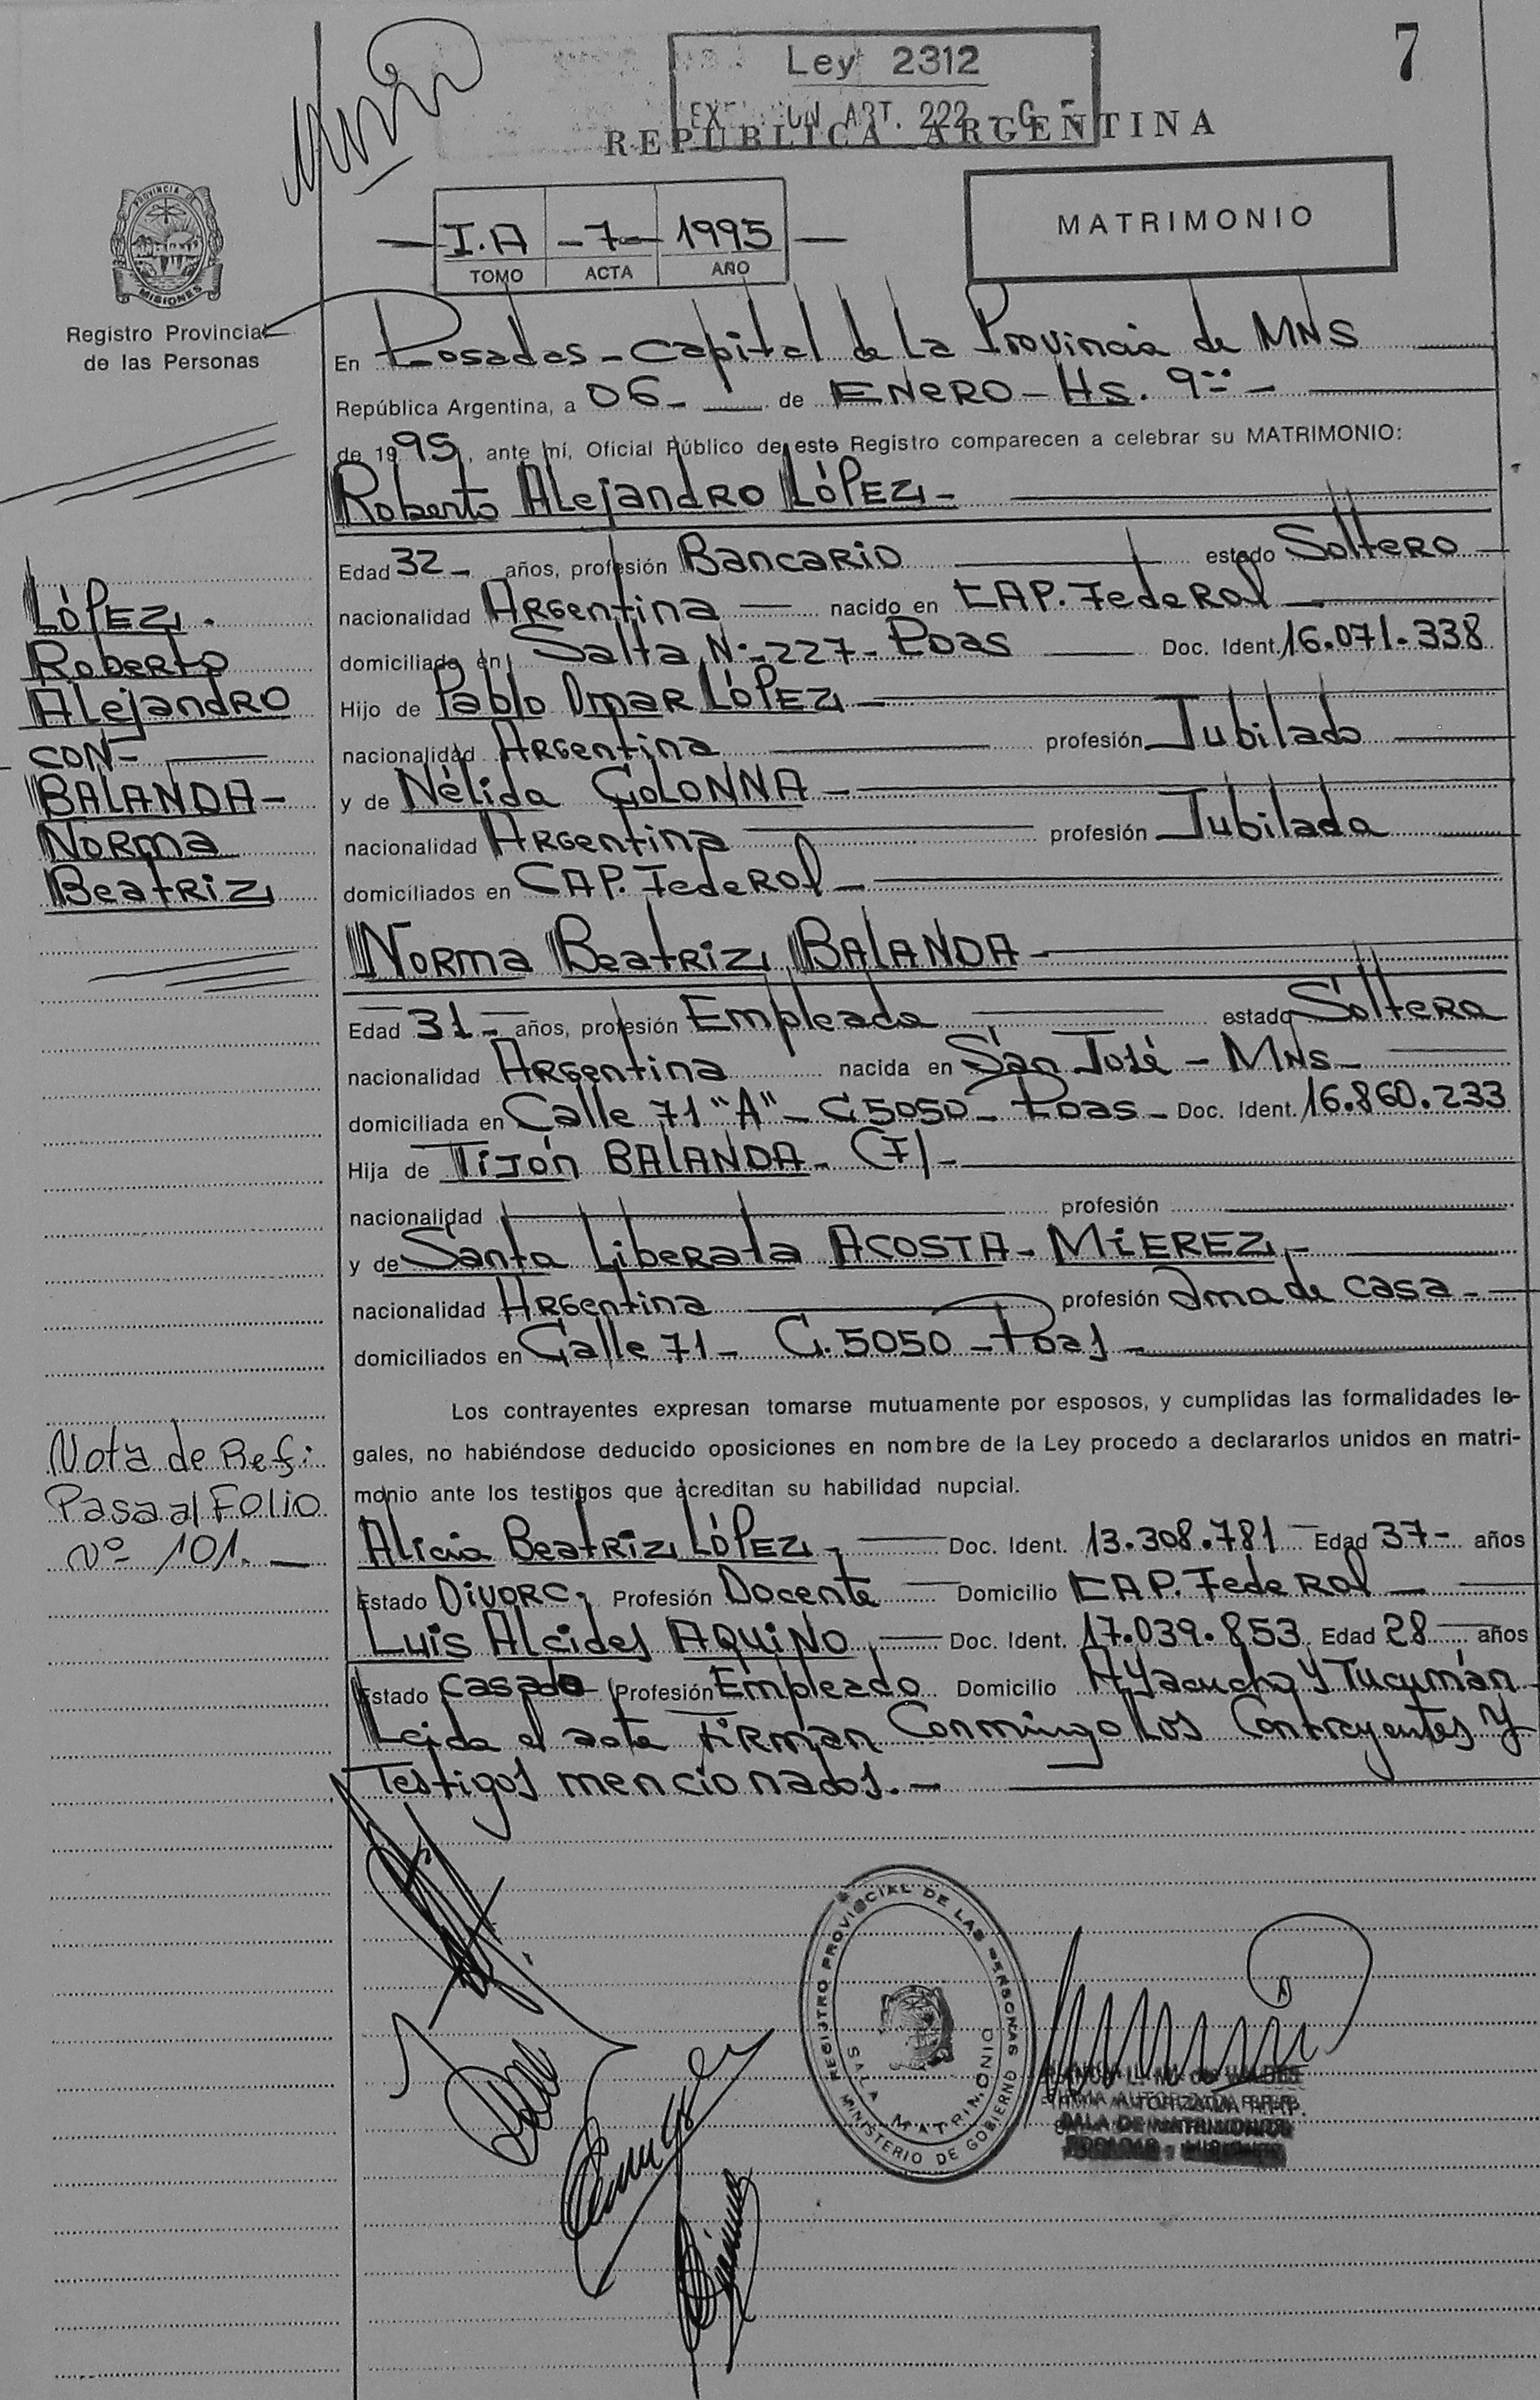 7
Ley 2312
ART. 222
REPUBLICA ARGENTINA
MATRIMONIO
I.A -7- 1995
TOMO ACTA AÑO
PROVINCIA DE
MISIONES
Registro Provincial
de las Personas
En Posadas - Capital de La Provincia de MNS
República Argentina, a 06 - de ENERO - Hs. 9:00 -
de 1995, ante mí, Oficial Público de este Registro comparecen a celebrar su MATRIMONIO:
Roberto Alejandro LÓPEZ -
Edad 32 - años, profesión Bancario estado Soltero
nacionalidad Argentina - nacido en CAP. Federal -
domiciliado en Salta N° 227 - Pdas Doc. Ident. 16.071.338
Hijo de Pablo Omar LÓPEZ -
nacionalidad Argentina profesión Jubilado
y de Nélida COLONNA -
nacionalidad Argentina profesión Jubilada
domiciliados en CAP. Federal -
LÓPEZ.
Roberto
Alejandro
CON -
BALANDA -
Norma
Beatriz
Norma Beatriz BALANDA -
Edad 31 - años, profesión Empleada estado Soltera
nacionalidad Argentina nacida en San José - MNS -
domiciliada en Calle 71 "A" - C. 5050 - Pdas - Doc. Ident. 16.860.233
Hija de Tijón BALANDA - (F) -
nacionalidad profesión
y de Santa Liberata ACOSTA - MIEREZ -
nacionalidad Argentina profesión Ama de casa -
domiciliados en Calle 71 - C. 5050 - Pdas -
Los contrayentes expresan tomarse mutuamente por esposos, y cumplidas las formalidades le-
gales, no habiéndose deducido oposiciones en nombre de la Ley procedo a declararlos unidos en matri-
monio ante los testigos que acreditan su habilidad nupcial.
Nota de Ref:
Pasa al Folio
N° 101. -
Alicia Beatriz LÓPEZ - Doc. Ident. 13.308.781 - Edad 37 - años
Estado Divorc. Profesión Docente - Domicilio CAP. Federal -
Luis Alcides AQUINO - Doc. Ident. 17.039.853 Edad 28 años
Estado casado Profesión Empleado Domicilio Ayacucho y Tucumán
Leida el acta Firman Conmigo los Contrayentes y
Testigos mencionados. -
REGISTRO PROVINCIAL DE LAS PERSONAS
SALA MATRIMONIO
MINISTERIO DE GOBIERNO
FIRMA AUTORIZADA
SALA DE MATRIMONIOS